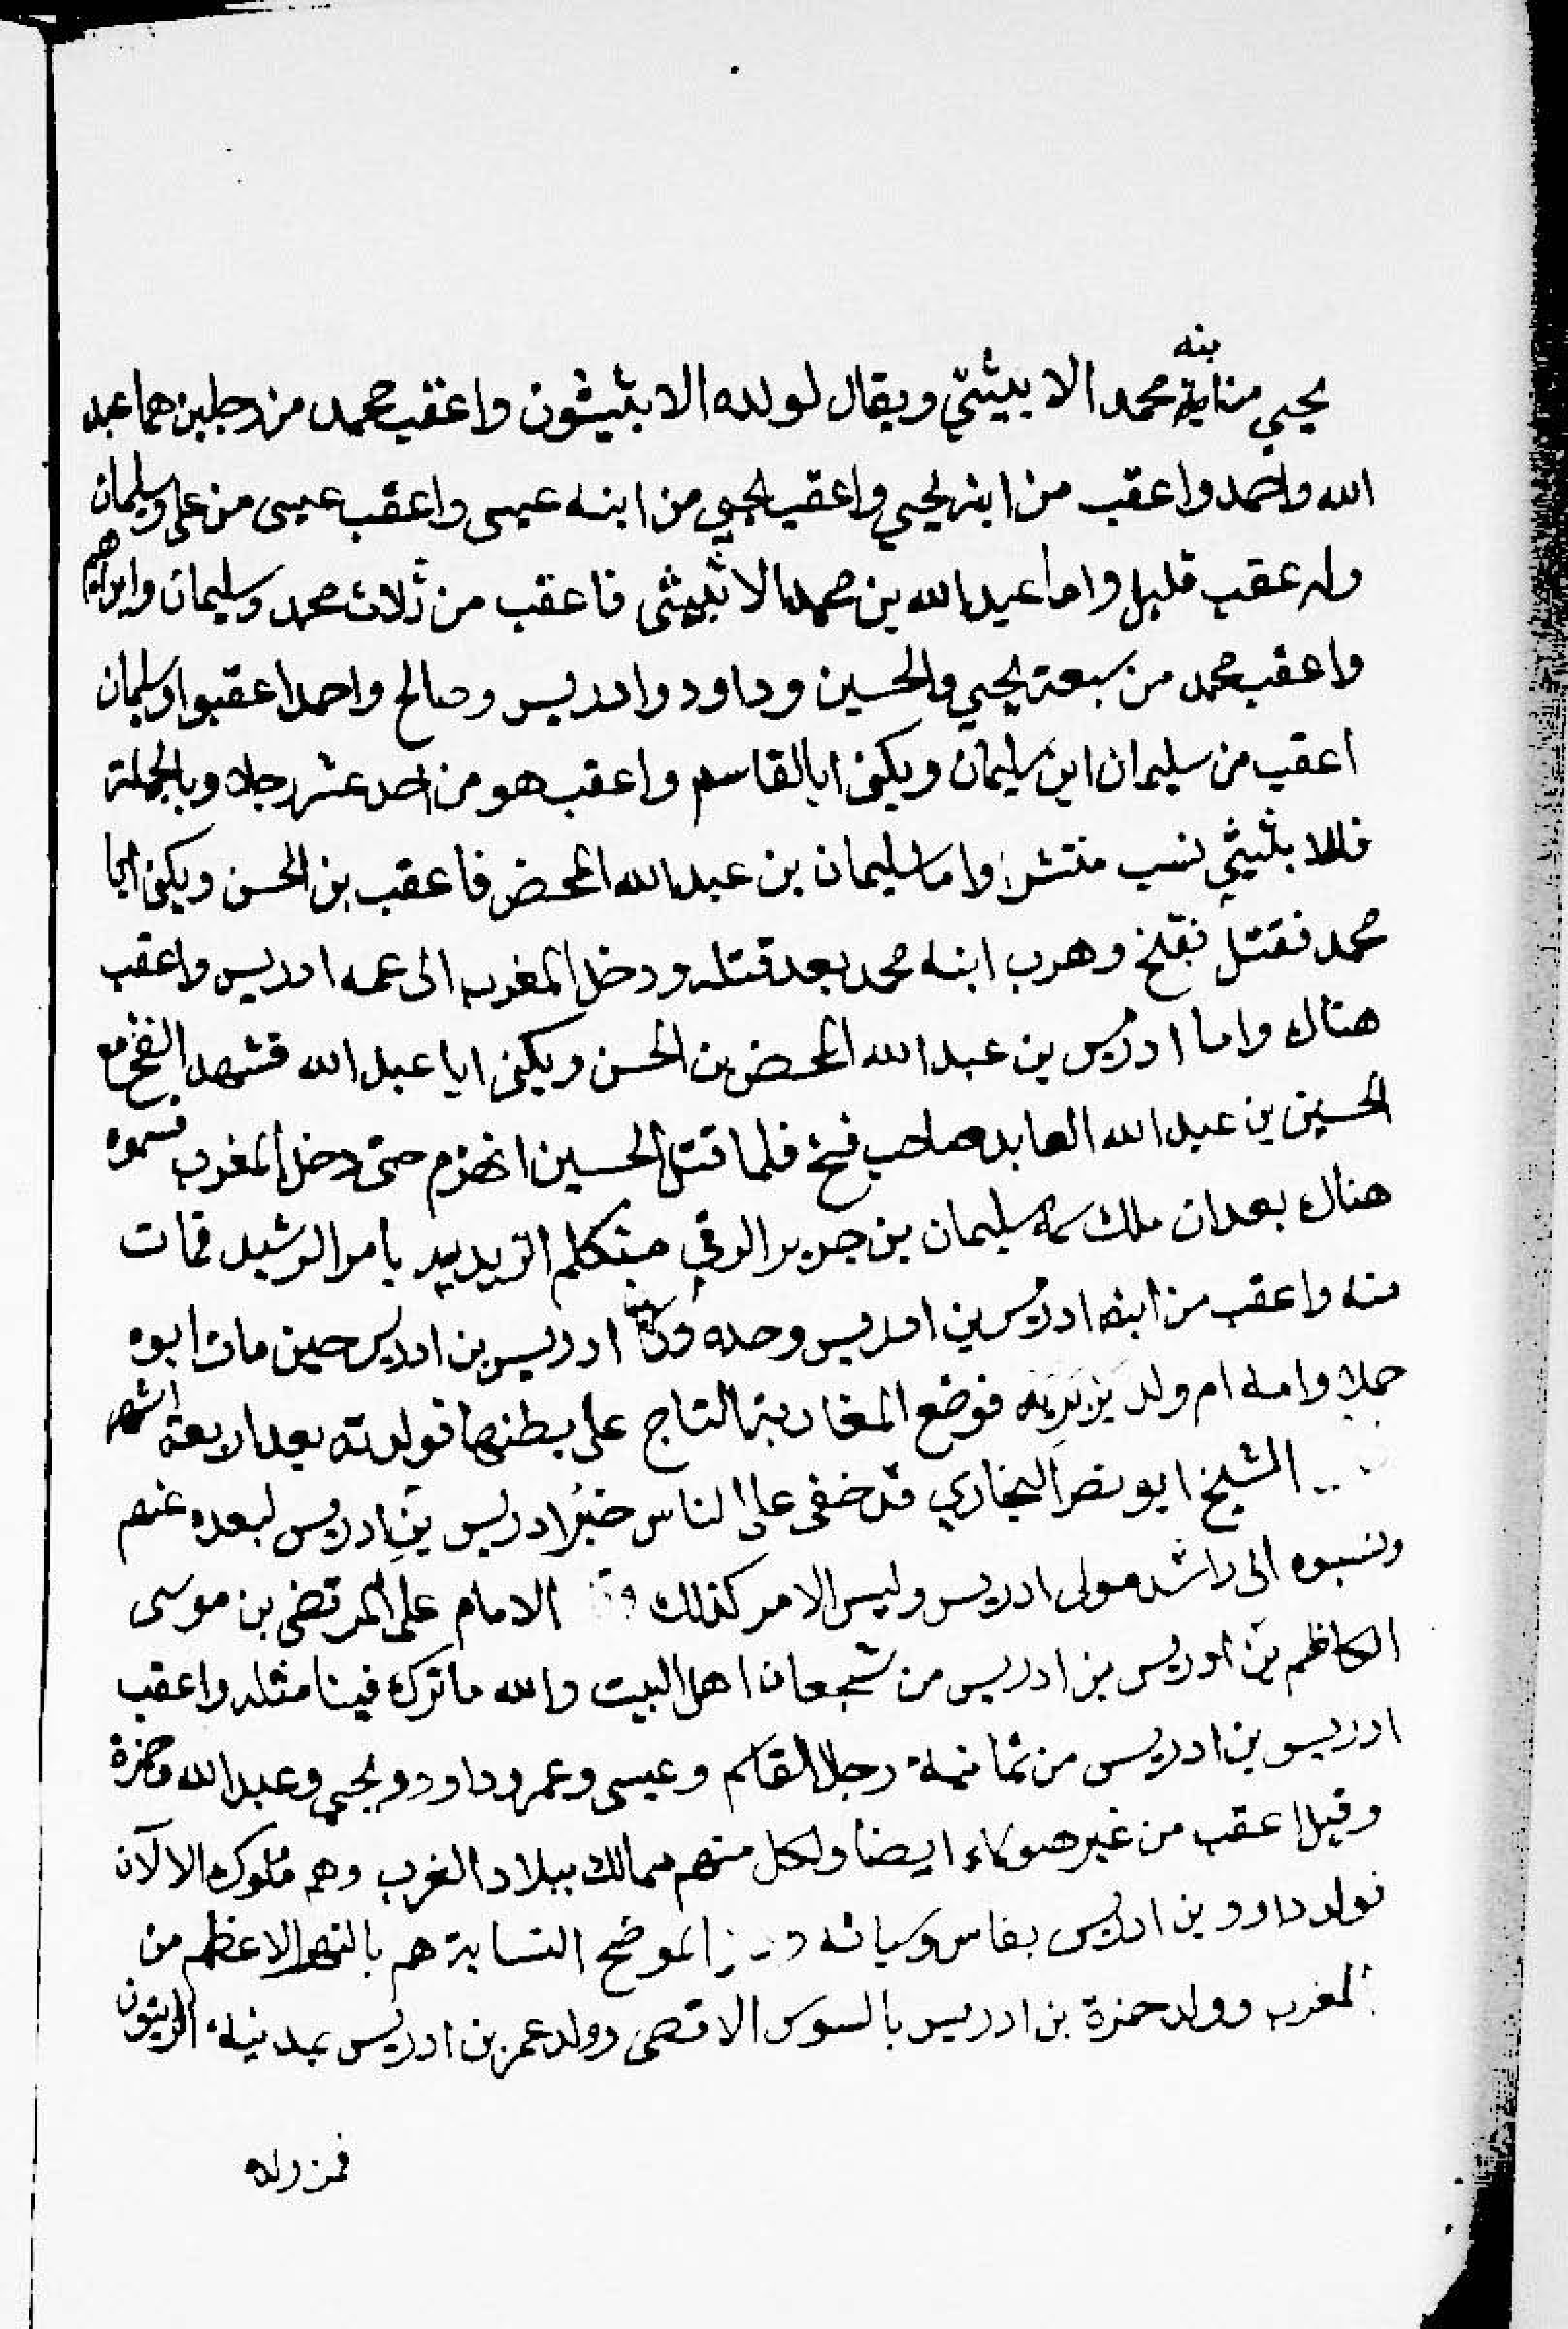 بنه
يحيي من محمد الابيثي ويقال لولده الابثيثون واعقب محمد من رجلين هما عبد
الله واحمد واعقب من ابنه يحيي واعقب يحيي من ابنه عيسى واعقب عيسى من على وسليمان
وله عقب قليل واما عبد الله بن محمد الاثبيثى فاعقب من ثلاث محمد وسليمان وابراهيم
واعقب محمد من سبعة يحيي والحسين وداود وادريس وصالح واحمد اعقبوا وسليمان
اعقب من سليمان ابن سليمان ويكنى ابا القاسم واعقب هو من احد عشر رجلا وبالجملة
فللابثيثي نسب منتشر واما سليمان بن عبد الله المحض فاعقب بن الحسن ويكنى ابا
محمد فقتل بفخ وهرب ابنه محمد بعد قتله ودخل المغرب الى عمه ادريس واعقب
هناك واما ادريس بن عبد الله المحض بن الحسن ويكنى ابا عبد الله فشهد الفخ مع
الحسين بن عبد الله العابد صاحب فخ فلما قتل الحسين انهزم حتى دخل المغرب فسموه
هناك بعد ان ملك سمه سليمان بن جرير الرقي متكلم الزيديه بامر الرشيد فمات
منه واعقب من ابنه ادريس بن ادريس وحده وكان ادريس بن ادريس حين مات ابوه
حملا وامه ام ولد بربريه فوضع المغاربة التاج على بطنها فولدته بعد اربعة اشهر
الشيخ ابو نصر البخاري قد خفى على الناس خبر ادريس بن ادريس لبعده عنهم
ونسبوه الى راشد مولى ادريس وليس الامر كذلك الامام على المرتضى بن موسى
الكاظم بن ادريس بن ادريس من شجعان اهل البيت والله ما ترك فينا مثله واعقب
ادريس بن ادريس من ثمانية رجلا القاسم وعيسى وعمر وداود ويحيي وعبد الله وحمزة
وقيل اعقب من غير هولاء ايضا ولكل منهم ممالك ببلاد الغرب وهم ملوك الا لآن
فولد داود بن ادريس بفاس وسياته الموضح النسابة هم بالنهر الاعظم من
المغرب وولد حمزة بن ادريس بالسوس الاقصى وولد عمر بن ادريس بمدينة الزيتون
فمن ولد